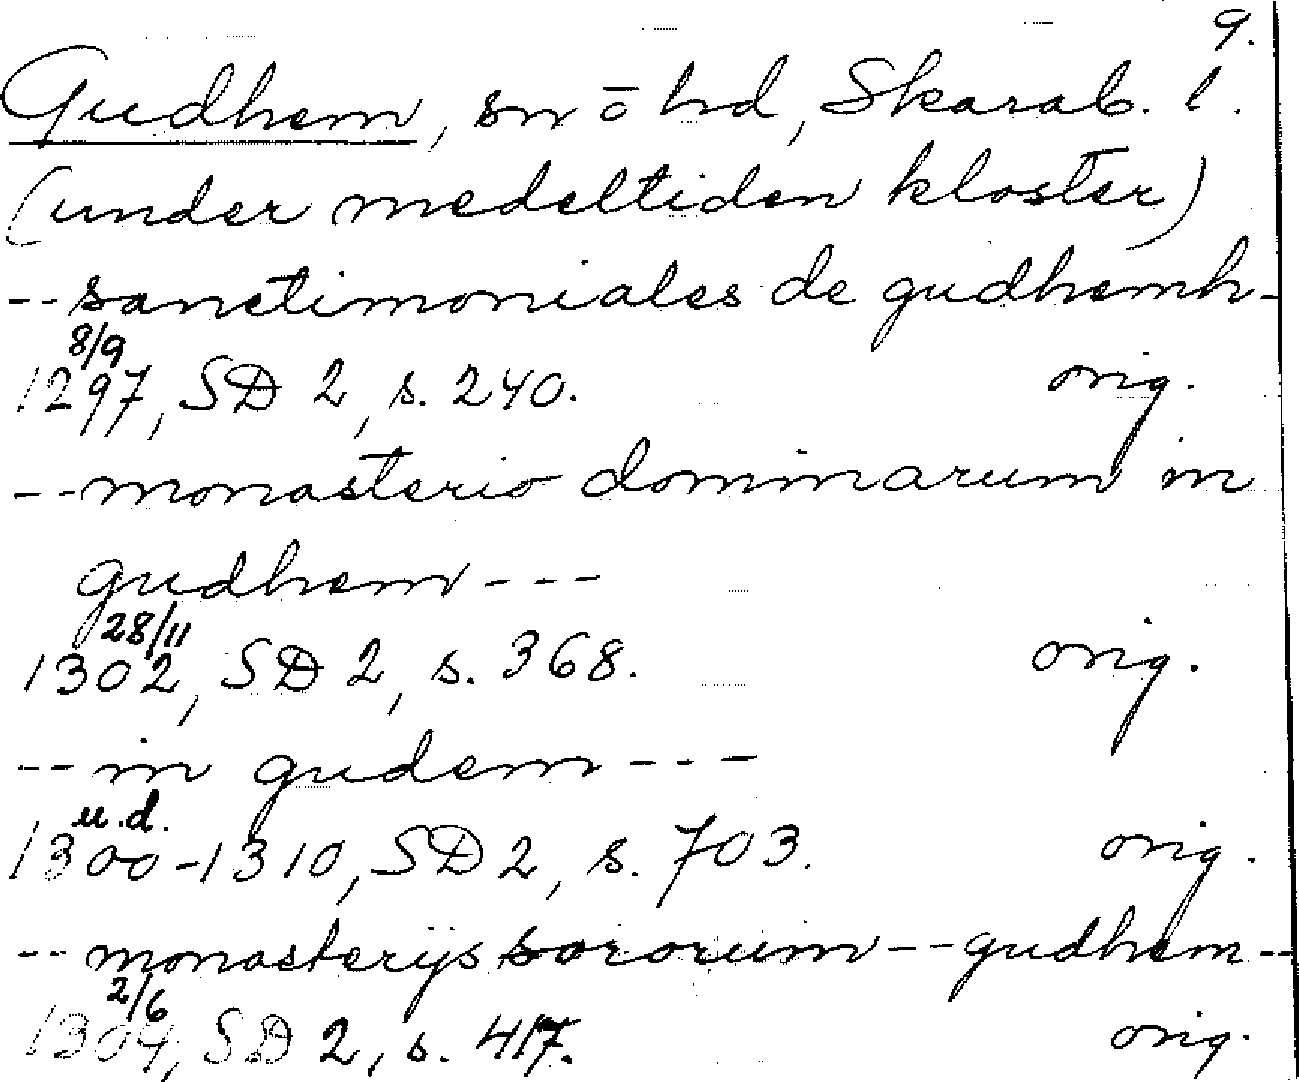 9.
Gudhem, sn o hd, Skarab. l.
(under medeltiden kloster)
-- sanctimoniales de gudhemh -
8/9
1297, SD 2, s. 240. orig.
-- monasterio dominarum in
gudhem ---
28/11
1302, SD 2, s. 368. orig.
-- in gudem ---
u.d.
1300-1310, SD 2, s. 703. orig.
-- monasterijs sororum -- gudhem --
2/6
1304, SD 2, s. 417. orig.